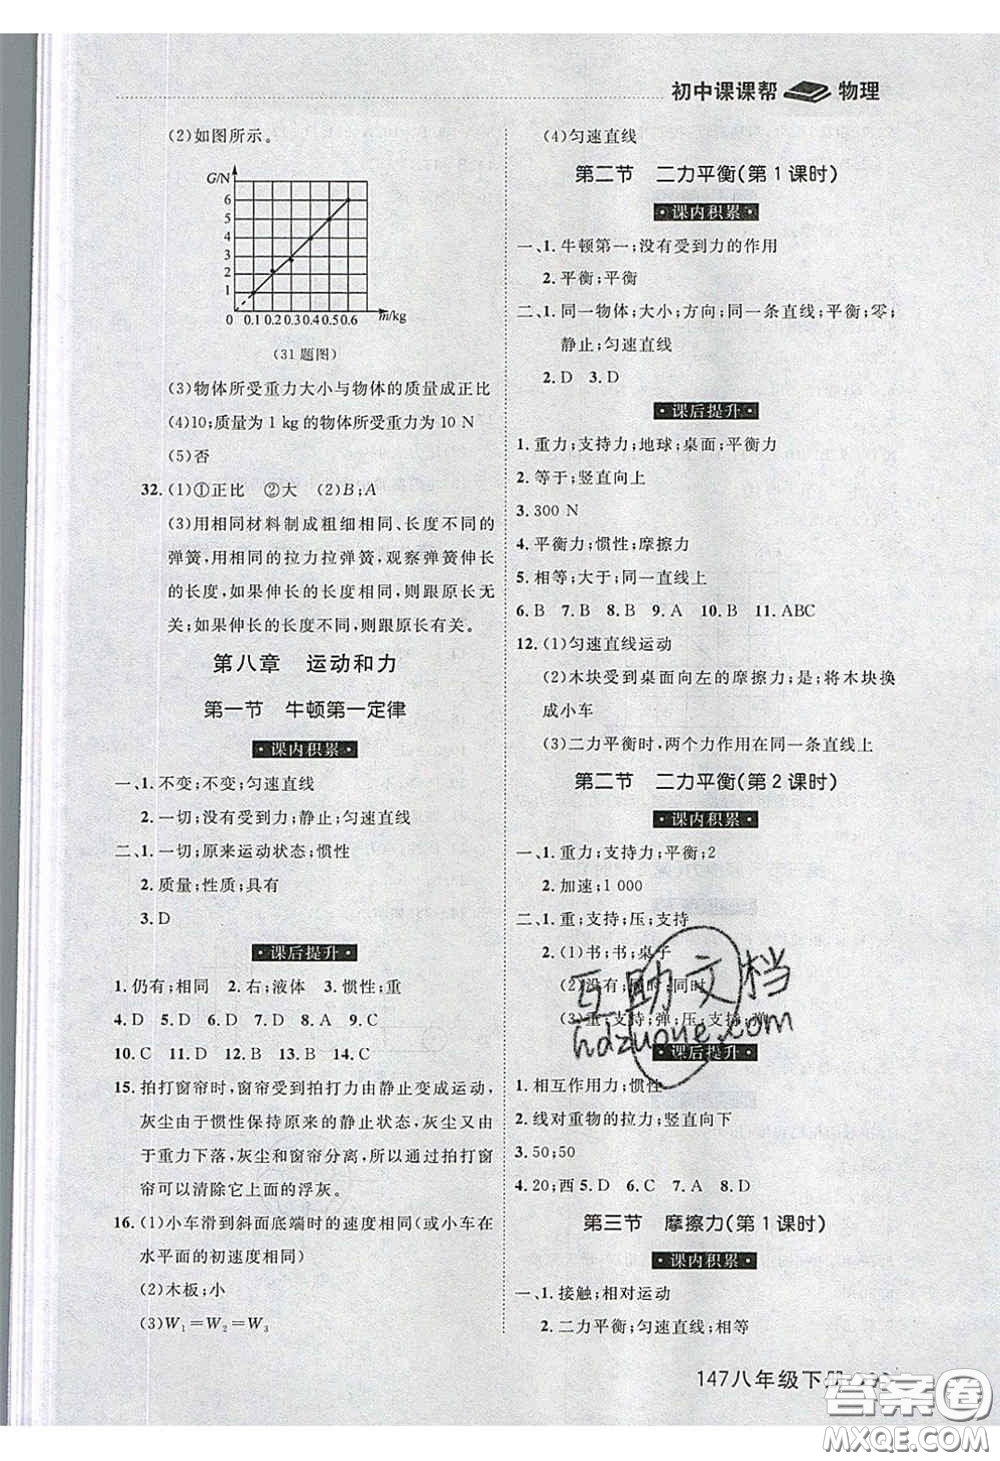 初中课课帮 物理
(2)如图所示。
G/N
6
5
4
3
2
1
0 0.1 0.2 0.3 0.4 0.5 0.6 m/kg
(31题图)
(3)物体所受重力大小与物体的质量成正比
(4)10;质量为1 kg的物体所受重力为10 N
(5)否
32.(1)①正比 ②大 (2)B;A
(3)用相同材料制成粗细相同、长度不同的
弹簧,用相同的拉力拉弹簧,观察弹簧伸长
的长度,如果伸长的长度相同,则跟原长无
关;如果伸长的长度不同,则跟原长有关。
第八章 运动和力
第一节 牛顿第一定律
课内积累
一、1.不变;不变;匀速直线
2.一切;没有受到力;静止;匀速直线
二、1.一切;原来运动状态;惯性
2.质量;性质;具有
3.D
课后提升
1.仍有;相同 2.右;液体 3.惯性;重
4.D 5.D 6.D 7.D 8.A 9.C
10.C 11.D 12.B 13.B 14.C
15.拍打窗帘时,窗帘受到拍打力由静止变成运动,
灰尘由于惯性保持原来的静止状态,灰尘又由
于重力下落,灰尘和窗帘分离,所以通过拍打窗
帘可以清除它上面的浮灰。
16.(1)小车滑到斜面底端时的速度相同(或小车在
水平面的初速度相同)
(2)木板;小
(3)W₁=W₂=W₃
(4)匀速直线
第二节 二力平衡(第1课时)
课内积累
一、1.牛顿第一;没有受到力的作用
2.平衡;平衡
二、1.同一物体;大小;方向;同一条直线;平衡;零;
静止;匀速直线
2.D 3.D
课后提升
1.重力;支持力;地球;桌面;平衡力
2.等于;竖直向上
3.300 N
4.平衡力;惯性;摩擦力
5.相等;大于;同一直线上
6.B 7.B 8.B 9.A 10.B 11.ABC
12.(1)匀速直线运动
(2)木块受到桌面向左的摩擦力;是;将木块换
成小车
(3)二力平衡时,两个力作用在同一条直线上
第二节 二力平衡(第2课时)
课内积累
一、1.重力;支持力;平衡;2
2.加速;1 000
二、1.重;支持;压;支持
2.(1)书;书;桌子
(2)没有;同时;同时
(3)重;支持;弹;压;支持;弹
课后提升
1.相互作用力;惯性
2.线对重物的拉力;竖直向下
3.50;50
4.20;西 5.D 6.C 7.D 8.D
第三节 摩擦力(第1课时)
课内积累
一、1.接触;相对运动
2.二力平衡;匀速直线;相等
147八年级下册
互助文档
hdzuoye.com
答案圈
MXQE.COM